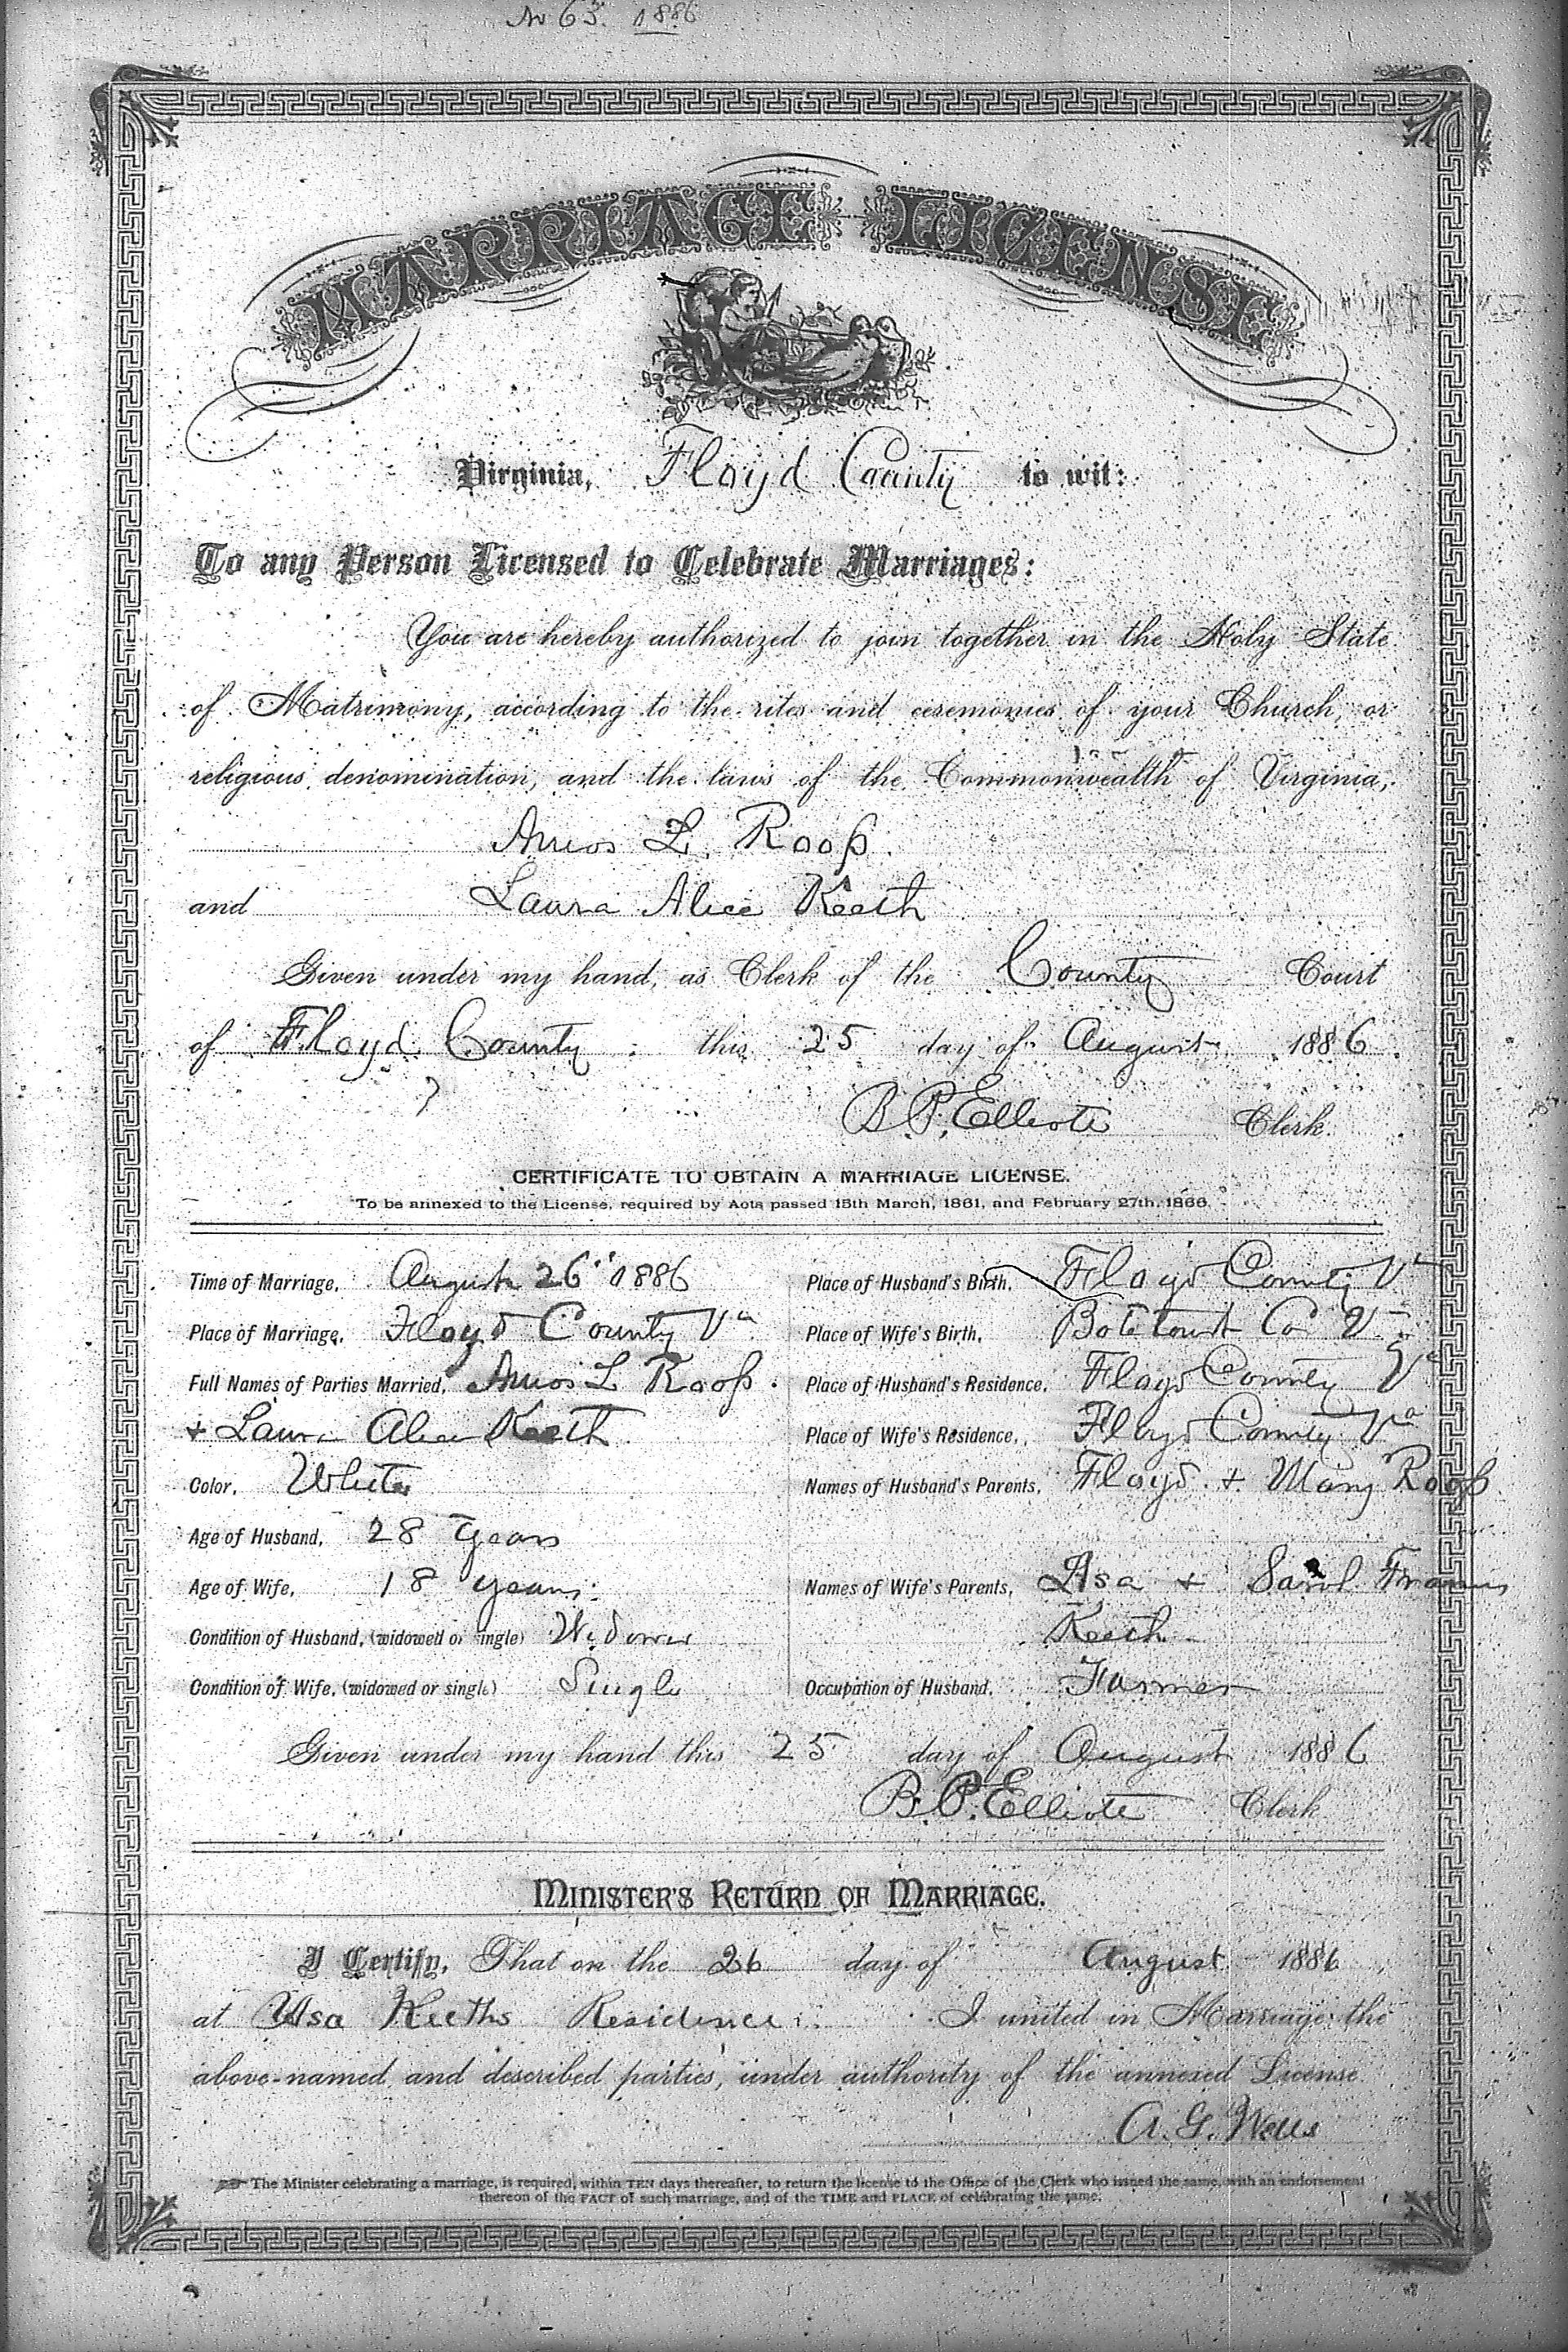 No 63. 1886
MARRIAGE LICENSE
Virginia, Floyd County to wit:
To any Person Licensed to Celebrate Marriages:
You are hereby authorized to join together in the Holy State
of Matrimony, according to the rites and ceremonies of your Church, or
religious denomination, and the laws of the Commonwealth of Virginia,
Amos L. Roop.
and Laura Alice Keith
Given under my hand, as Clerk of the County Court
of Floyd County this 25 day of August 1886.
B. P. Elliott Clerk.
CERTIFICATE TO OBTAIN A MARRIAGE LICENSE.
To be annexed to the License, required by Acts passed 15th March, 1861, and February 27th, 1866.
Time of Marriage, August 26" 1886
Place of Marriage, Floyd County Va
Full Names of Parties Married, Amos L Roop.
+ Laura Alice Keith
Color, White
Age of Husband, 28 years
Age of Wife, 18 years
Condition of Husband, (widowed or single) Widower
Condition of Wife, (widowed or single) Single
Place of Husband's Birth, Floyd County Va
Place of Wife's Birth, Botetourt Co Va
Place of Husband's Residence, Floyd County Va
Place of Wife's Residence, Floyd County Va
Names of Husband's Parents, Floyd + Mary Roop
Names of Wife's Parents, Asa + Sarah Frances
Keith
Occupation of Husband, Farmer
Given under my hand this 25 day of August 1886
B. P. Elliott Clerk
MINISTER'S RETURN OF MARRIAGE.
I Certify, That on the 26 day of August 1886,
at Asa Keeths Residence I united in Marriage the
above-named and described parties, under authority of the annexed License.
A. G. Wells
The Minister celebrating a marriage, is required, within TEN days thereafter, to return the license to the Office of the Clerk who issued the same, with an endorsement
thereon of the FACT of such marriage, and of the TIME and PLACE of celebrating the same.